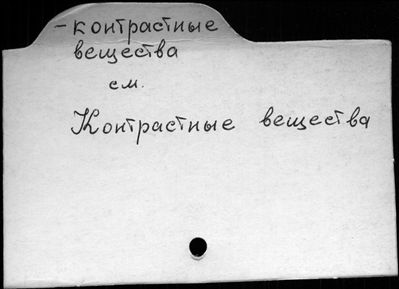 - контрастные
вещества
см.
Контрастные вещества